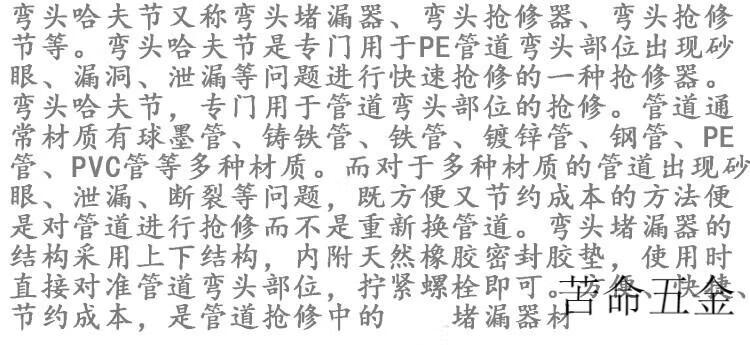 弯头哈夫节又称弯头堵漏器、弯头抢修器、弯头抢修
节等。弯头哈夫节是专门用于PE管道弯头部位出现砂
眼、漏洞、泄漏等问题进行快速抢修的一种抢修器。
弯头哈夫节，专门用于管道弯头部位的抢修。管道通
常材质有球墨管、铸铁管、铁管、镀锌管、钢管、PE
管、PVC管等多种材质。而对于多种材质的管道出现砂
眼、泄漏、断裂等问题，既方便又节约成本的方法便
是对管道进行抢修而不是重新换管道。弯头堵漏器的
结构采用上下结构，内附天然橡胶密封胶垫，使用时
直接对准管道弯头部位，拧紧螺栓即可。方便、快捷、
节约成本，是管道抢修中的 堵漏器材
苦命五金